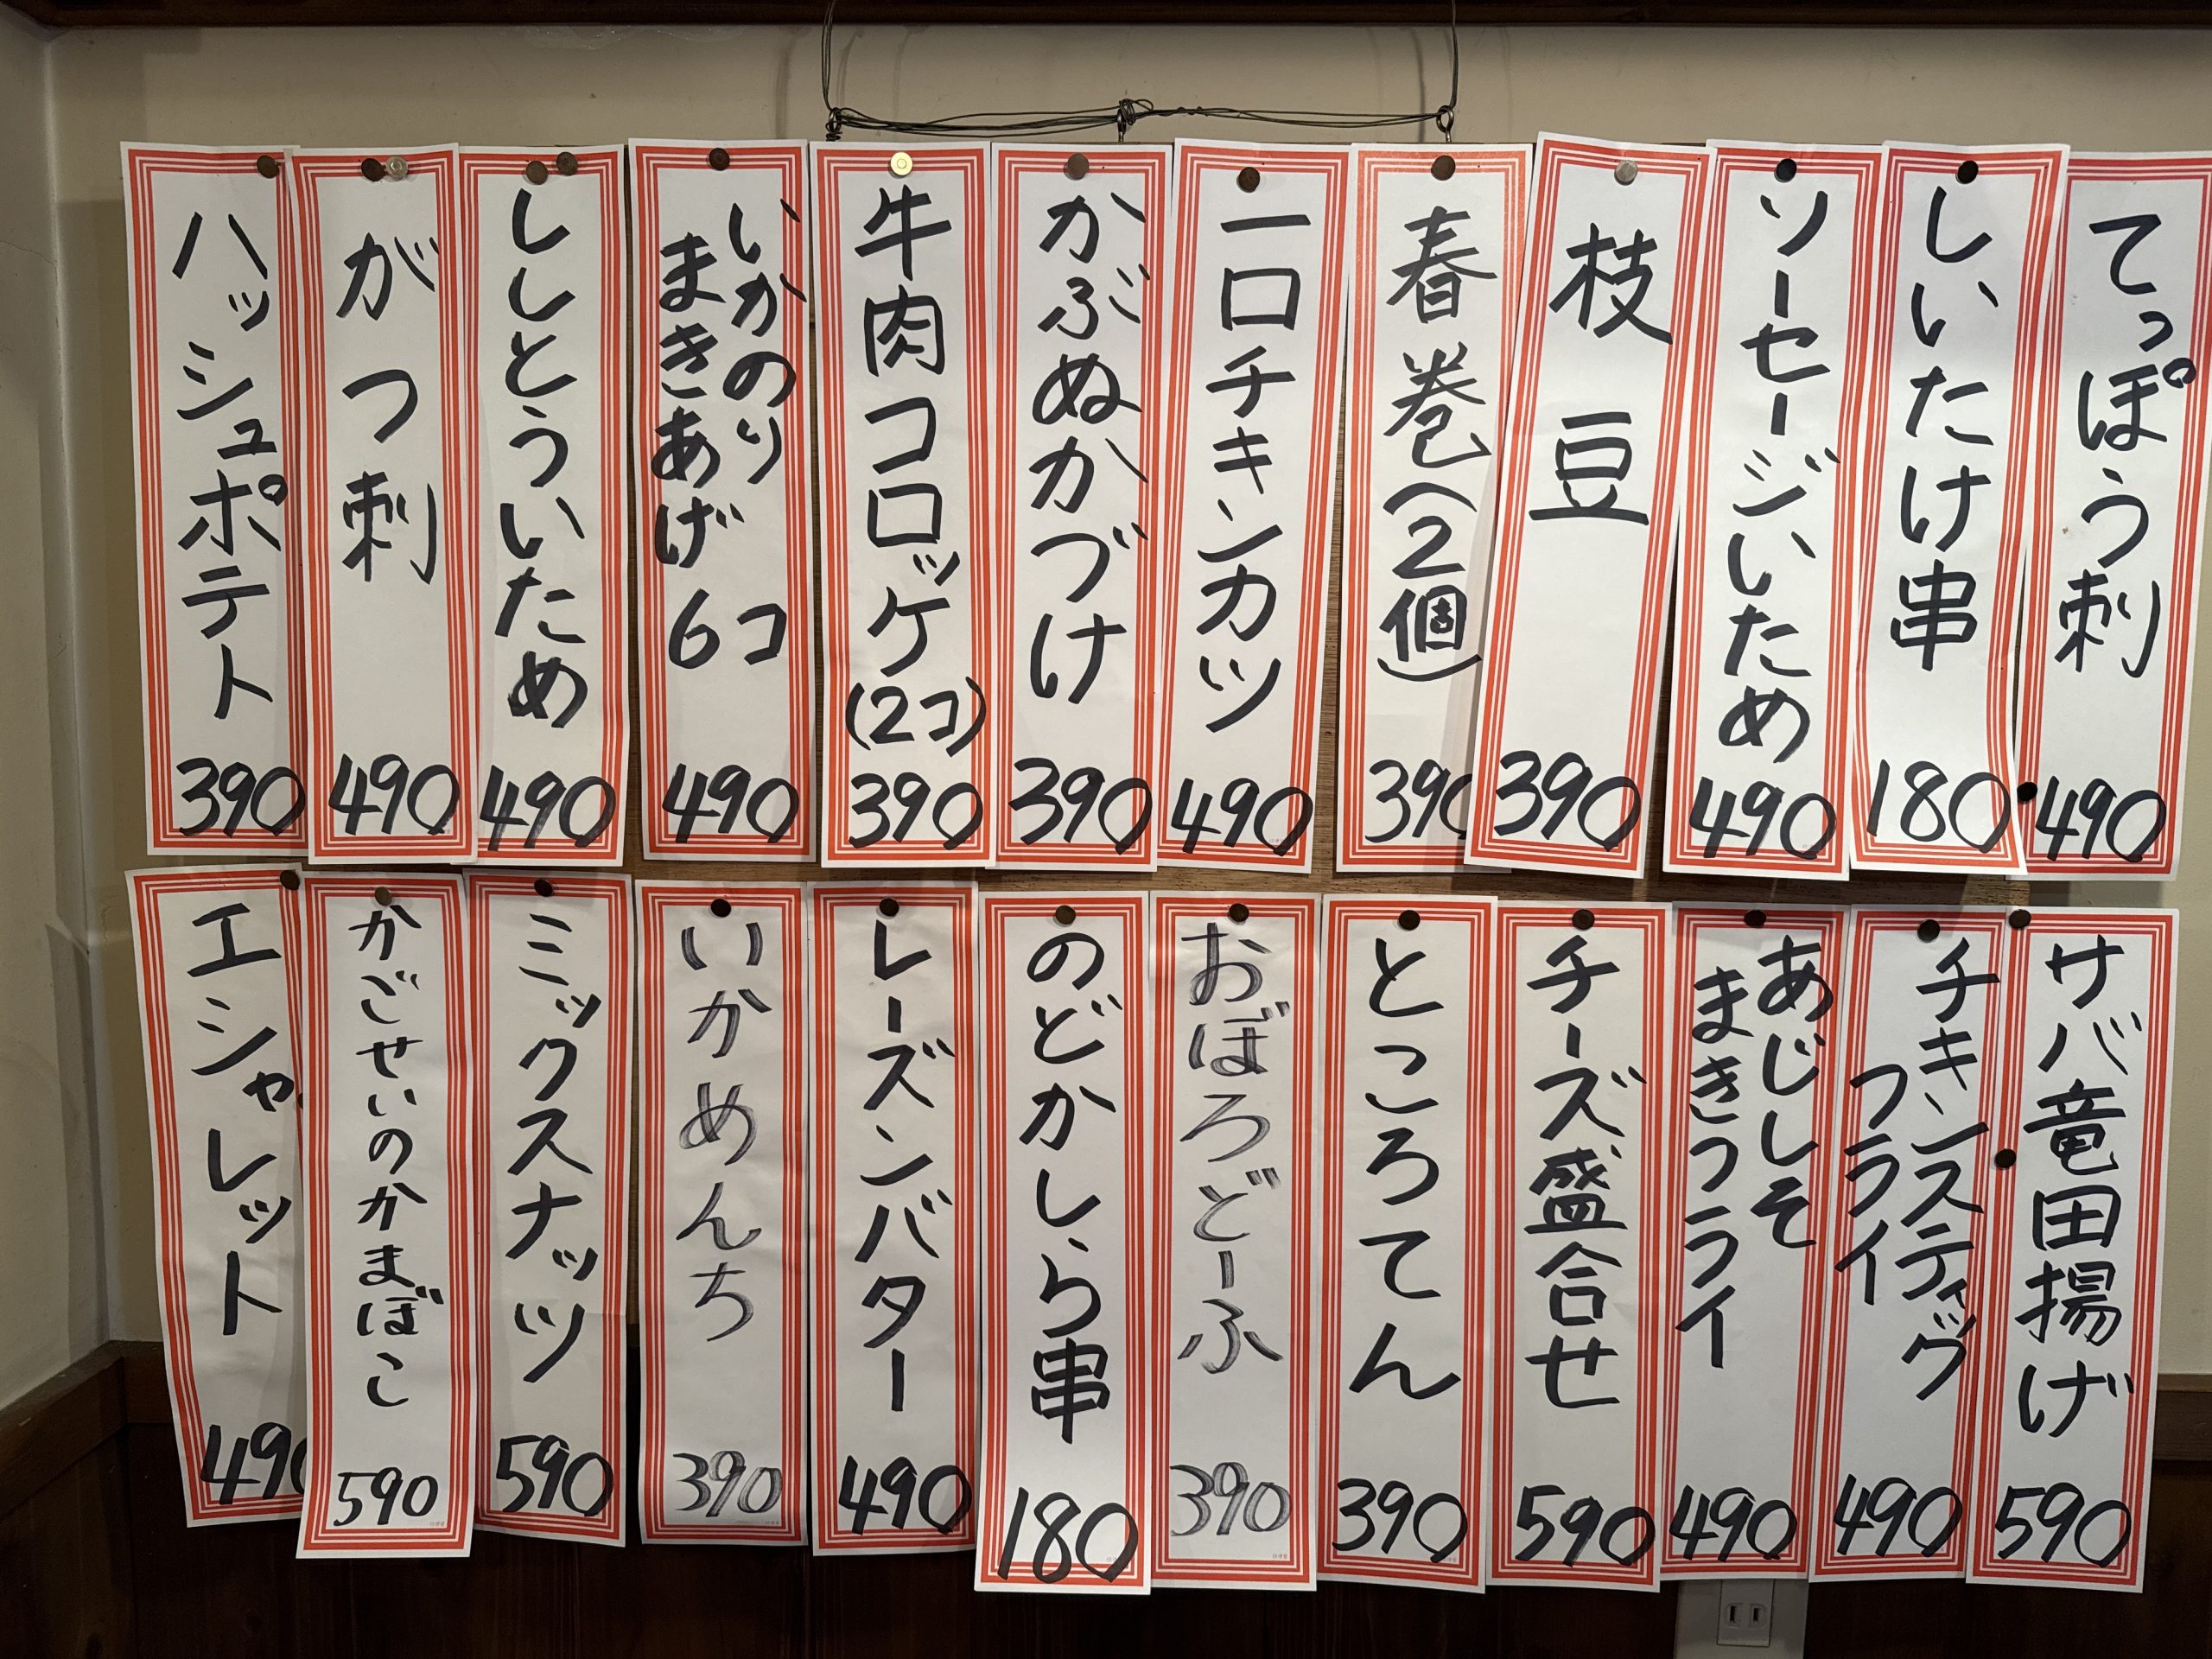 てっぽう刺
490
しいたけ串
180
ソーセージいため
490
枝豆
390
春巻(2個)
390
一口チキンカツ
490
かぶぬかづけ
390
牛肉コロッケ
(2コ)
390
いかのり
まきあげ
6コ
490
ししとういため
490
がつ刺
490
ハッシュポテト
390
サバ竜田揚げ
590
チキンスティック
フライ
490
あじしそ
まきフライ
490
チーズ盛合せ
590
ところてん
390
おぼろどーふ
390
のどかしら串
180
レーズンバター
490
いかめんち
390
ミックスナッツ
590
かごせいのかまぼこ
590
エシャレット
490